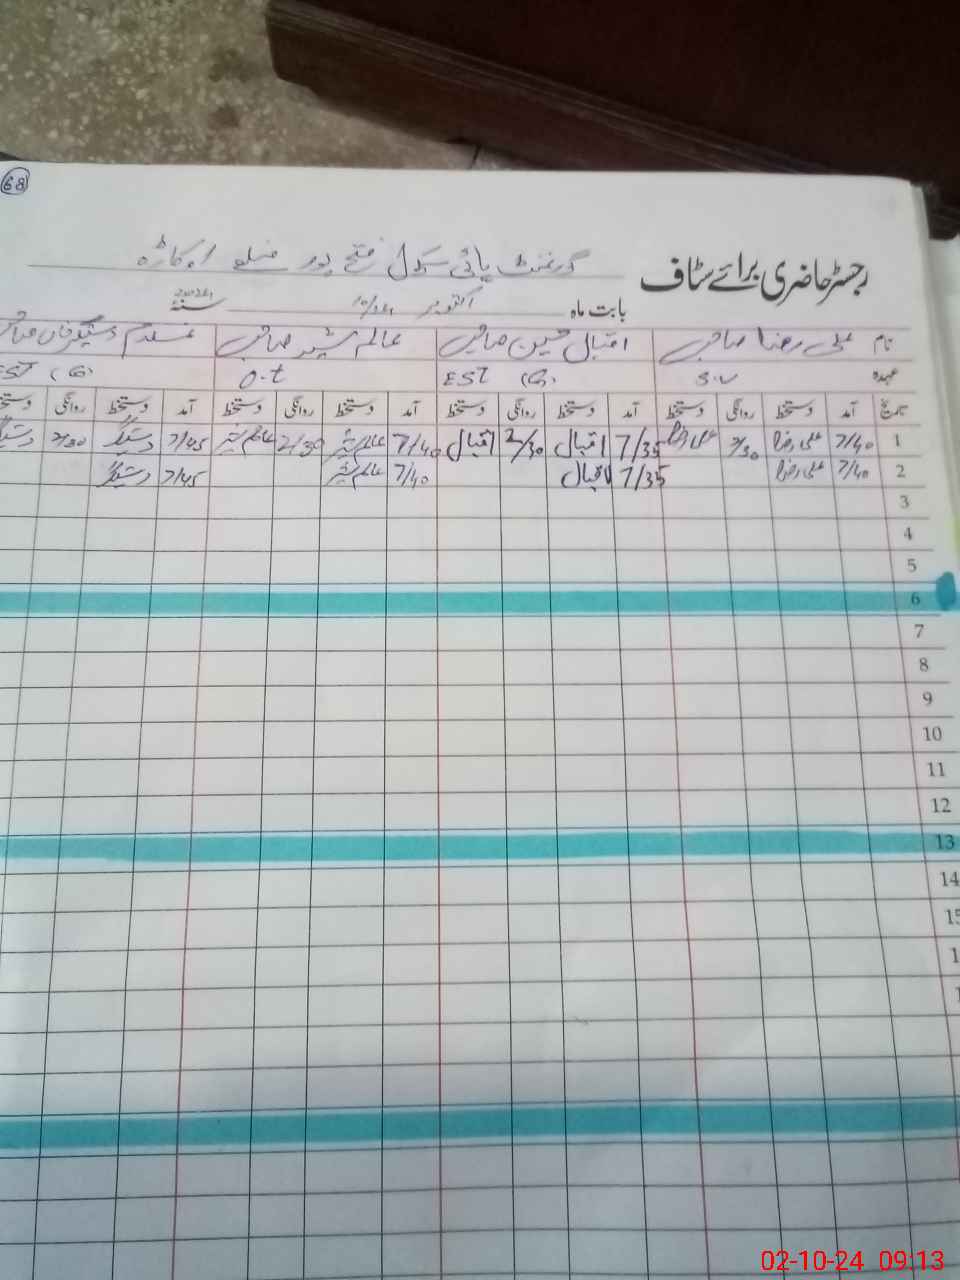 68
رجسٹر حاضری برائے سٹاف گورنمنٹ ہائی سکول فتح پور ضلع اوکاڑہ
بابت ماہ اکتوبر 10/24 سنہ 2024
نام علی رضا صاحب اقبال حسین صاحب عالم شیر صاحب غلام دستگیر خاں صاحب
عہدہ S.V EST (G) O.T EST (G)
تاریخ آمد دستخط روانگی دستخط آمد دستخط روانگی دستخط آمد دستخط روانگی دستخط آمد دستخط روانگی دستخط
1 7/40 علی رضا 2/30 علی رضا 7/35 اقبال 2/30 اقبال 7/40 عالم شیر 2/30 عالم شیر 7/45 دستگیر 2/30
2 7/40 علی رضا 7/35 اقبال 7/40 عالم شیر 7/45 دستگیر
3
4
5
6
7
8
9
10
11
12
13
14
02-10-24 09:13